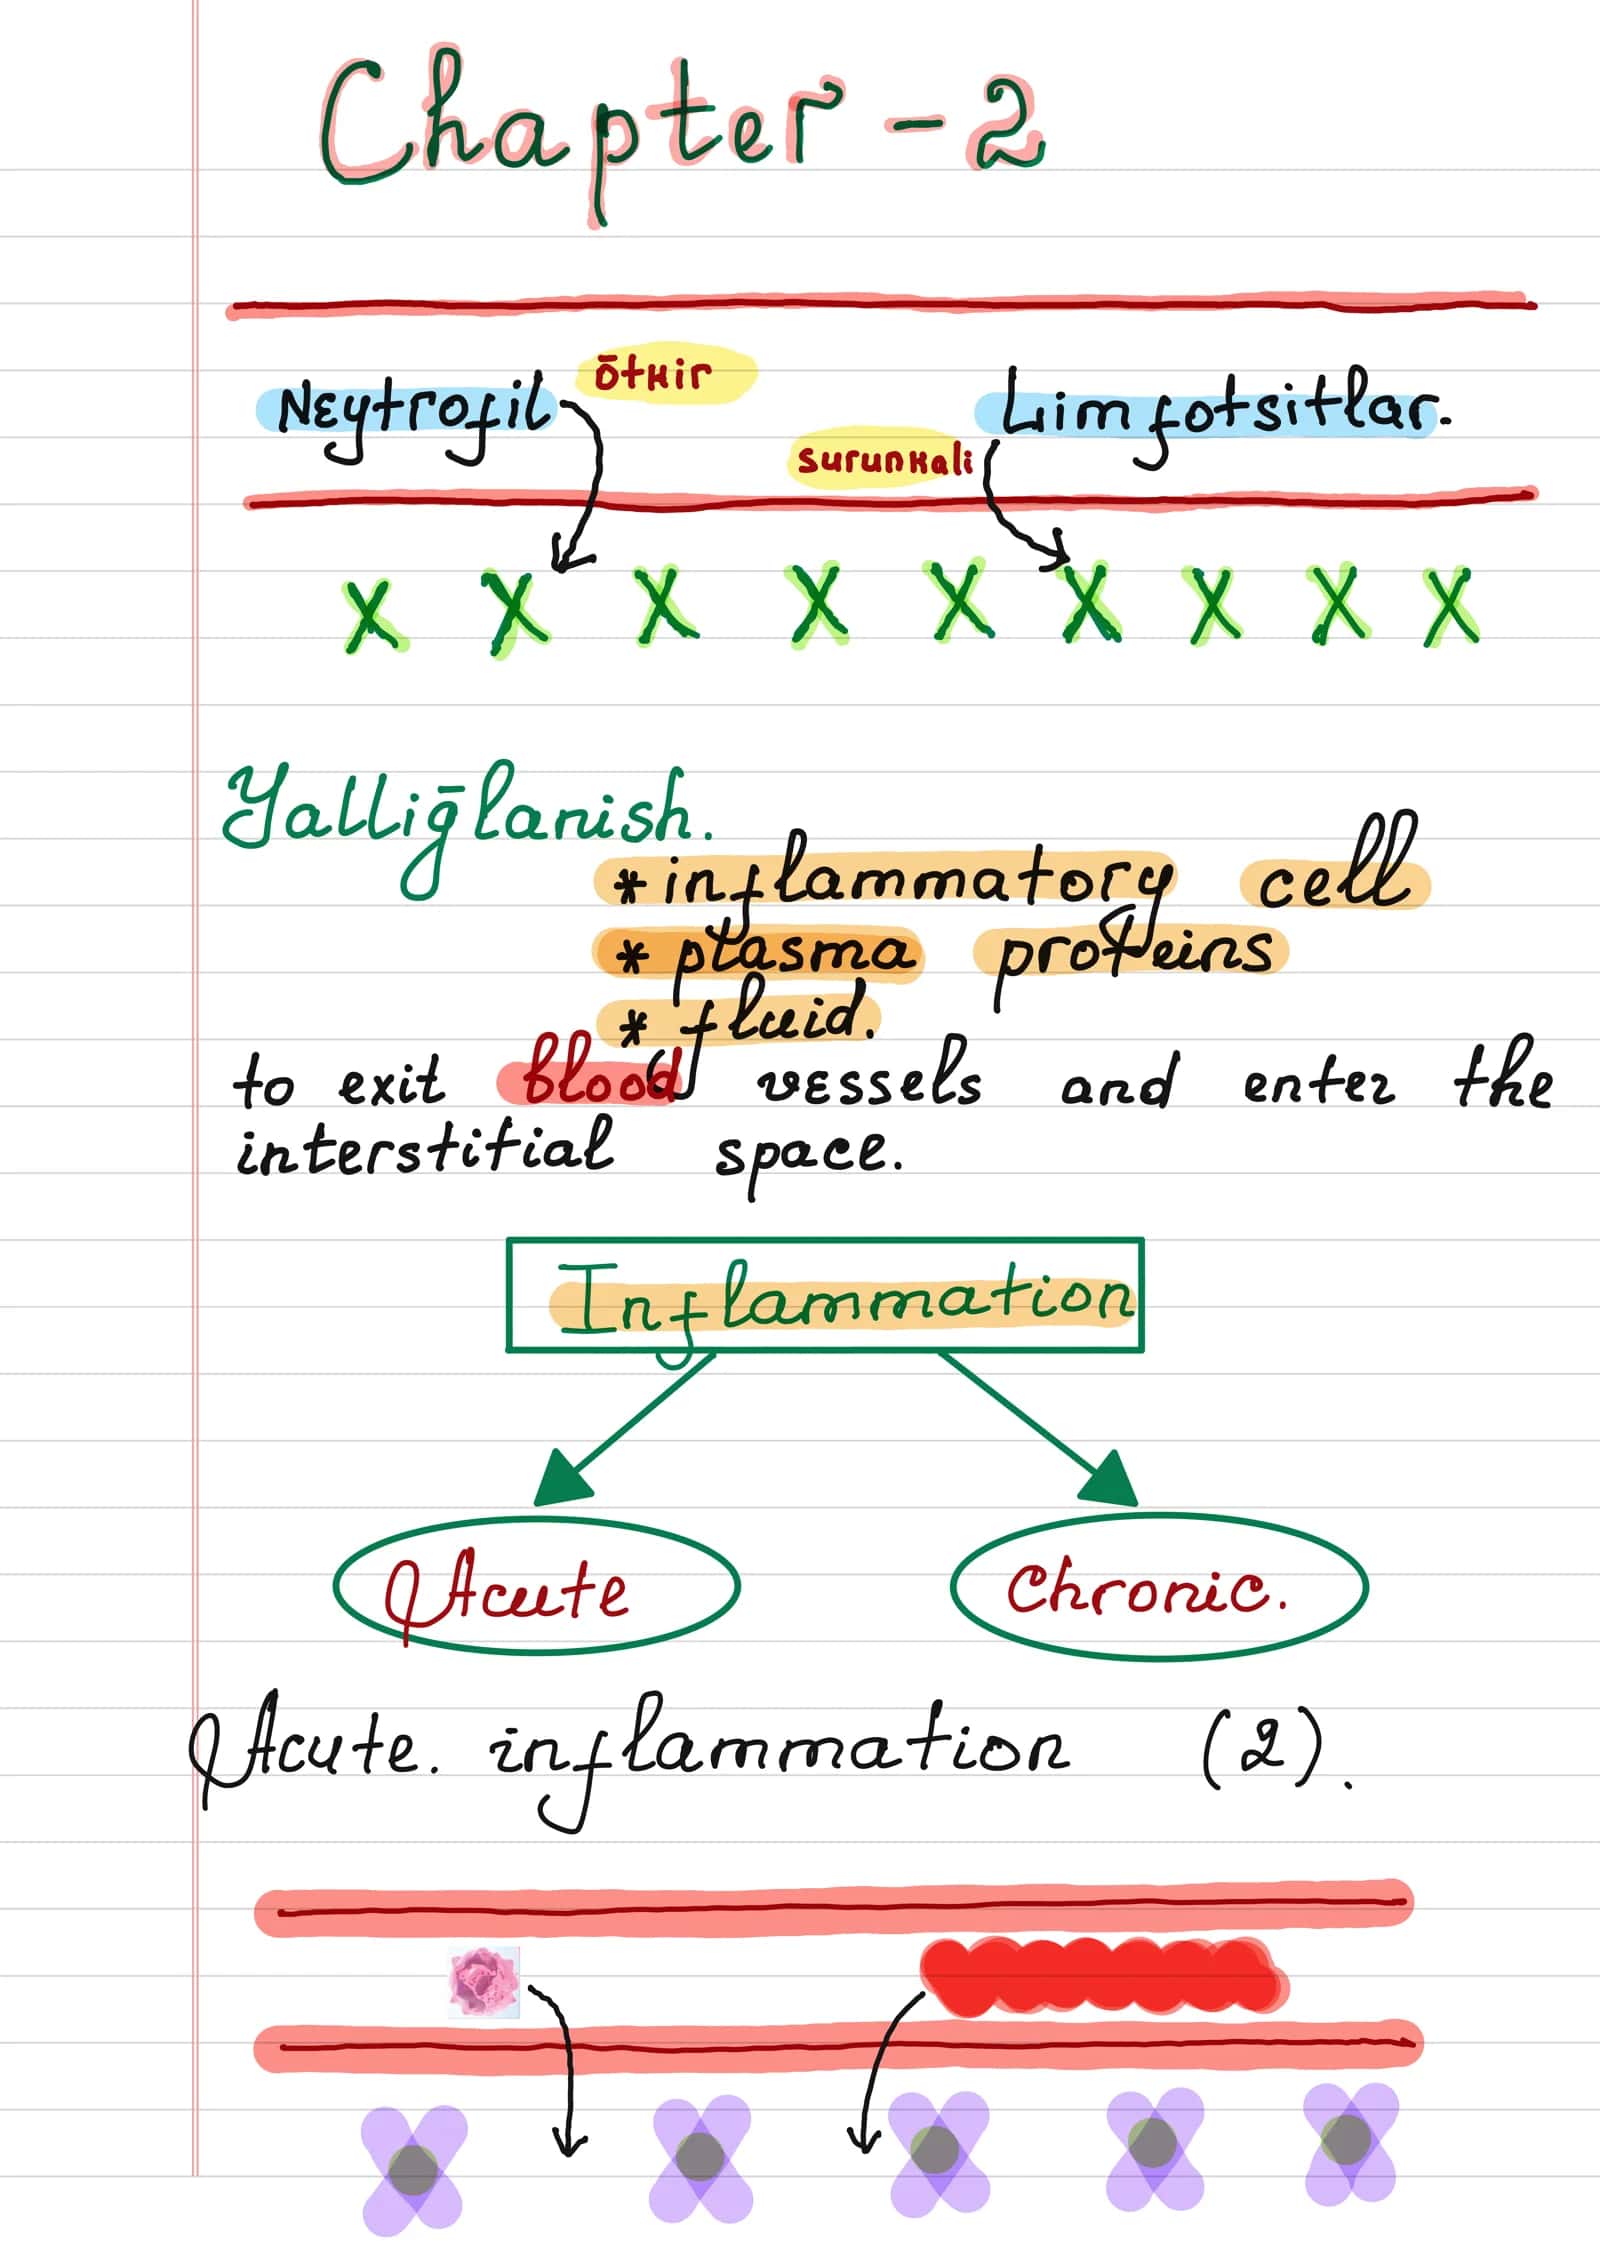 Chapter - 2
Neytrofil ōtkir Limfotsitlar.
surunkali
Yalliḡlanish.
* inflammatory cell
* plasma proteins
* fluid.
to exit blood vessels and enter the
interstitial space.
Inflammation
Acute Chronic.
Acute. inflammation (2).